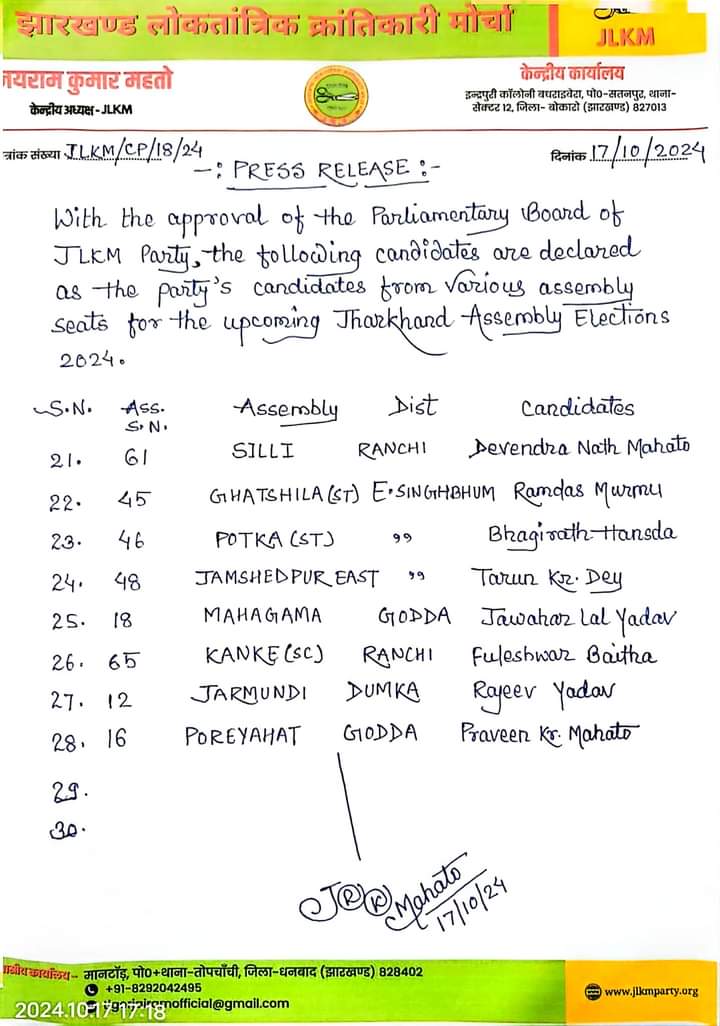 झारखण्ड लोकतांत्रिक क्रांतिकारी मोर्चा
JLKM
जयराम कुमार महतो
केन्द्रीय अध्यक्ष - JLKM
केन्द्रीय कार्यालय
इन्द्रपुरी कॉलोनी बघराइबेरा, पो०-सतनपुर, थाना-
सेक्टर 12, जिला- बोकारो (झारखण्ड) 827013
त्रांक संख्या JLKM/CP/18/24
दिनांक 17/10/2024
-: PRESS RELEASE :-
With the approval of the Parliamentary Board of
JLKM Party, the following candidates are declared
as the party's candidates from various assembly
seats for the upcoming Jharkhand Assembly Elections
2024.
S.N. Ass. S.N. Assembly Dist Candidates
21. 61 SILLI RANCHI Devendra Nath Mahato
22. 45 GHATSHILA (ST) E.SINGHBHUM Ramdas Murmu
23. 46 POTKA (ST) ,, Bhagirath Hansda
24. 48 JAMSHEDPUR EAST ,, Tarun Kr. Dey
25. 18 MAHAGAMA GODDA Jawahar Lal Yadav
26. 65 KANKE (SC) RANCHI Fuleshwar Baitha
27. 12 JARMUNDI DUMKA Rajeev Yadav
28. 16 POREYAHAT GODDA Praveen Kr. Mahato
29.
30.
JRK Mahato
17/10/24
कार्यालय - मानटॉड़, पो०+थाना-तोपचाँची, जिला-धनबाद (झारखण्ड) 828402
+91-8292042495
official@gmail.com
www.jlkmparty.org
2024.10.17 17:18